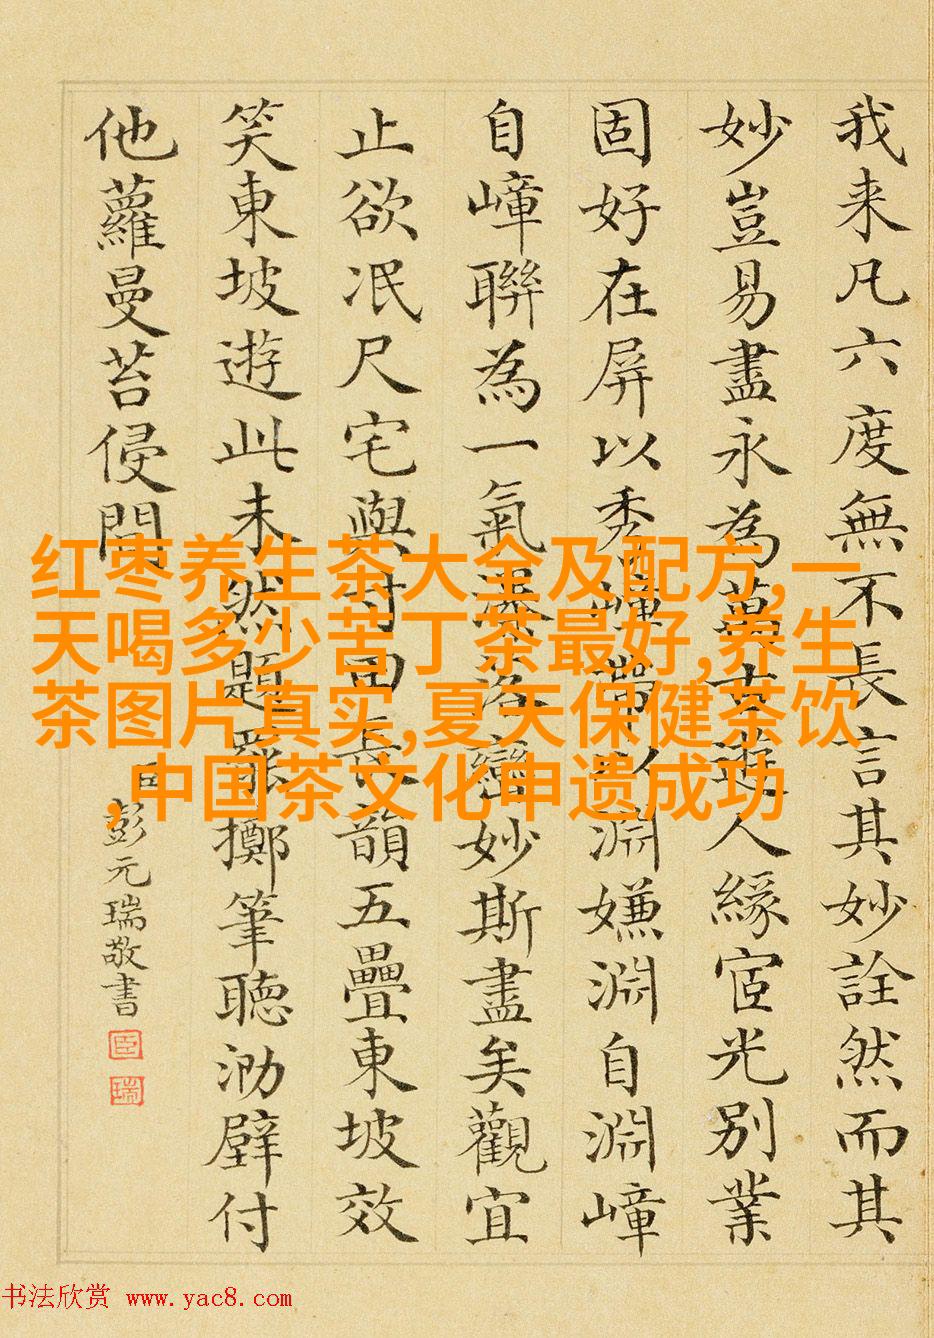 我来凡六度無不長言其妙詮然而其
妙豈易盡永為萬古遊人緣宦光別業
固好在屏以秀嶂帶以淵嫌淵自淵嶂
自嶂聯為一氣湊泊巒妙斯盡矣觀宜
止欲冺尺宅與寸田長韻五疊東坡效
笑東坡遊此未然題罷擲筆聽泐壁付
他蘿曼苔侵間
臣彭元瑞敬書
臣
瑞
红枣养生茶大全及配方,一
天喝多少苦丁茶最好,养生
茶图片真实,夏天保健茶饮
,中国茶文化申遗成功
书法欣赏 www.yac8.com